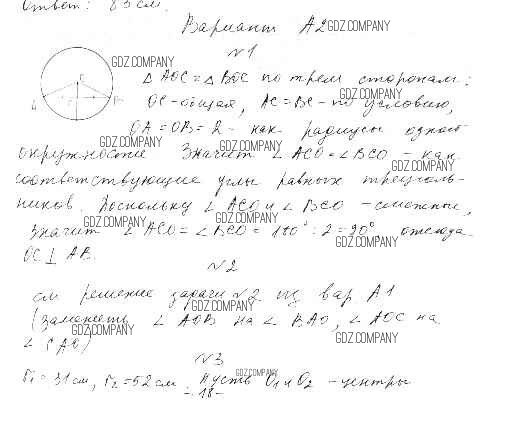 Ответ: 85 см.
Вариант А2
№1
△ AOC = △ BOC по трем сторонам:
OC - общая, AC = BC - по условию,
OA = OB = 2 - как радиусы одной
окружности Значит ∠ ACO = ∠ BCO - как
соответствующие углы равных треуголь-
ников. Поскольку ∠ ACO и ∠ BCO - смежные,
Значит ∠ ACO = ∠ BCO = 180° : 2 = 90°, отсюда
OC ⊥ AB.
№2
см решение задачи №2 из вар А1
(заменить ∠ AOB на ∠ BAO, ∠ AOC на
∠ CAO)
№3
r₁ = 31 см, r₂ = 52 см. Пусть O₁ и O₂ - центры
- 18 -
A
B
GDZ.COMPANY
GDZ.COMPANY
GDZ.COMPANY
GDZ.COMPANY
GDZ.COMPANY
GDZ.COMPANY
GDZ.COMPANY
GDZ.COMPANY
GDZ.COMPANY
GDZ.COMPANY
GDZ.COMPANY
GDZ.COMPANY
GDZ.COMPANY